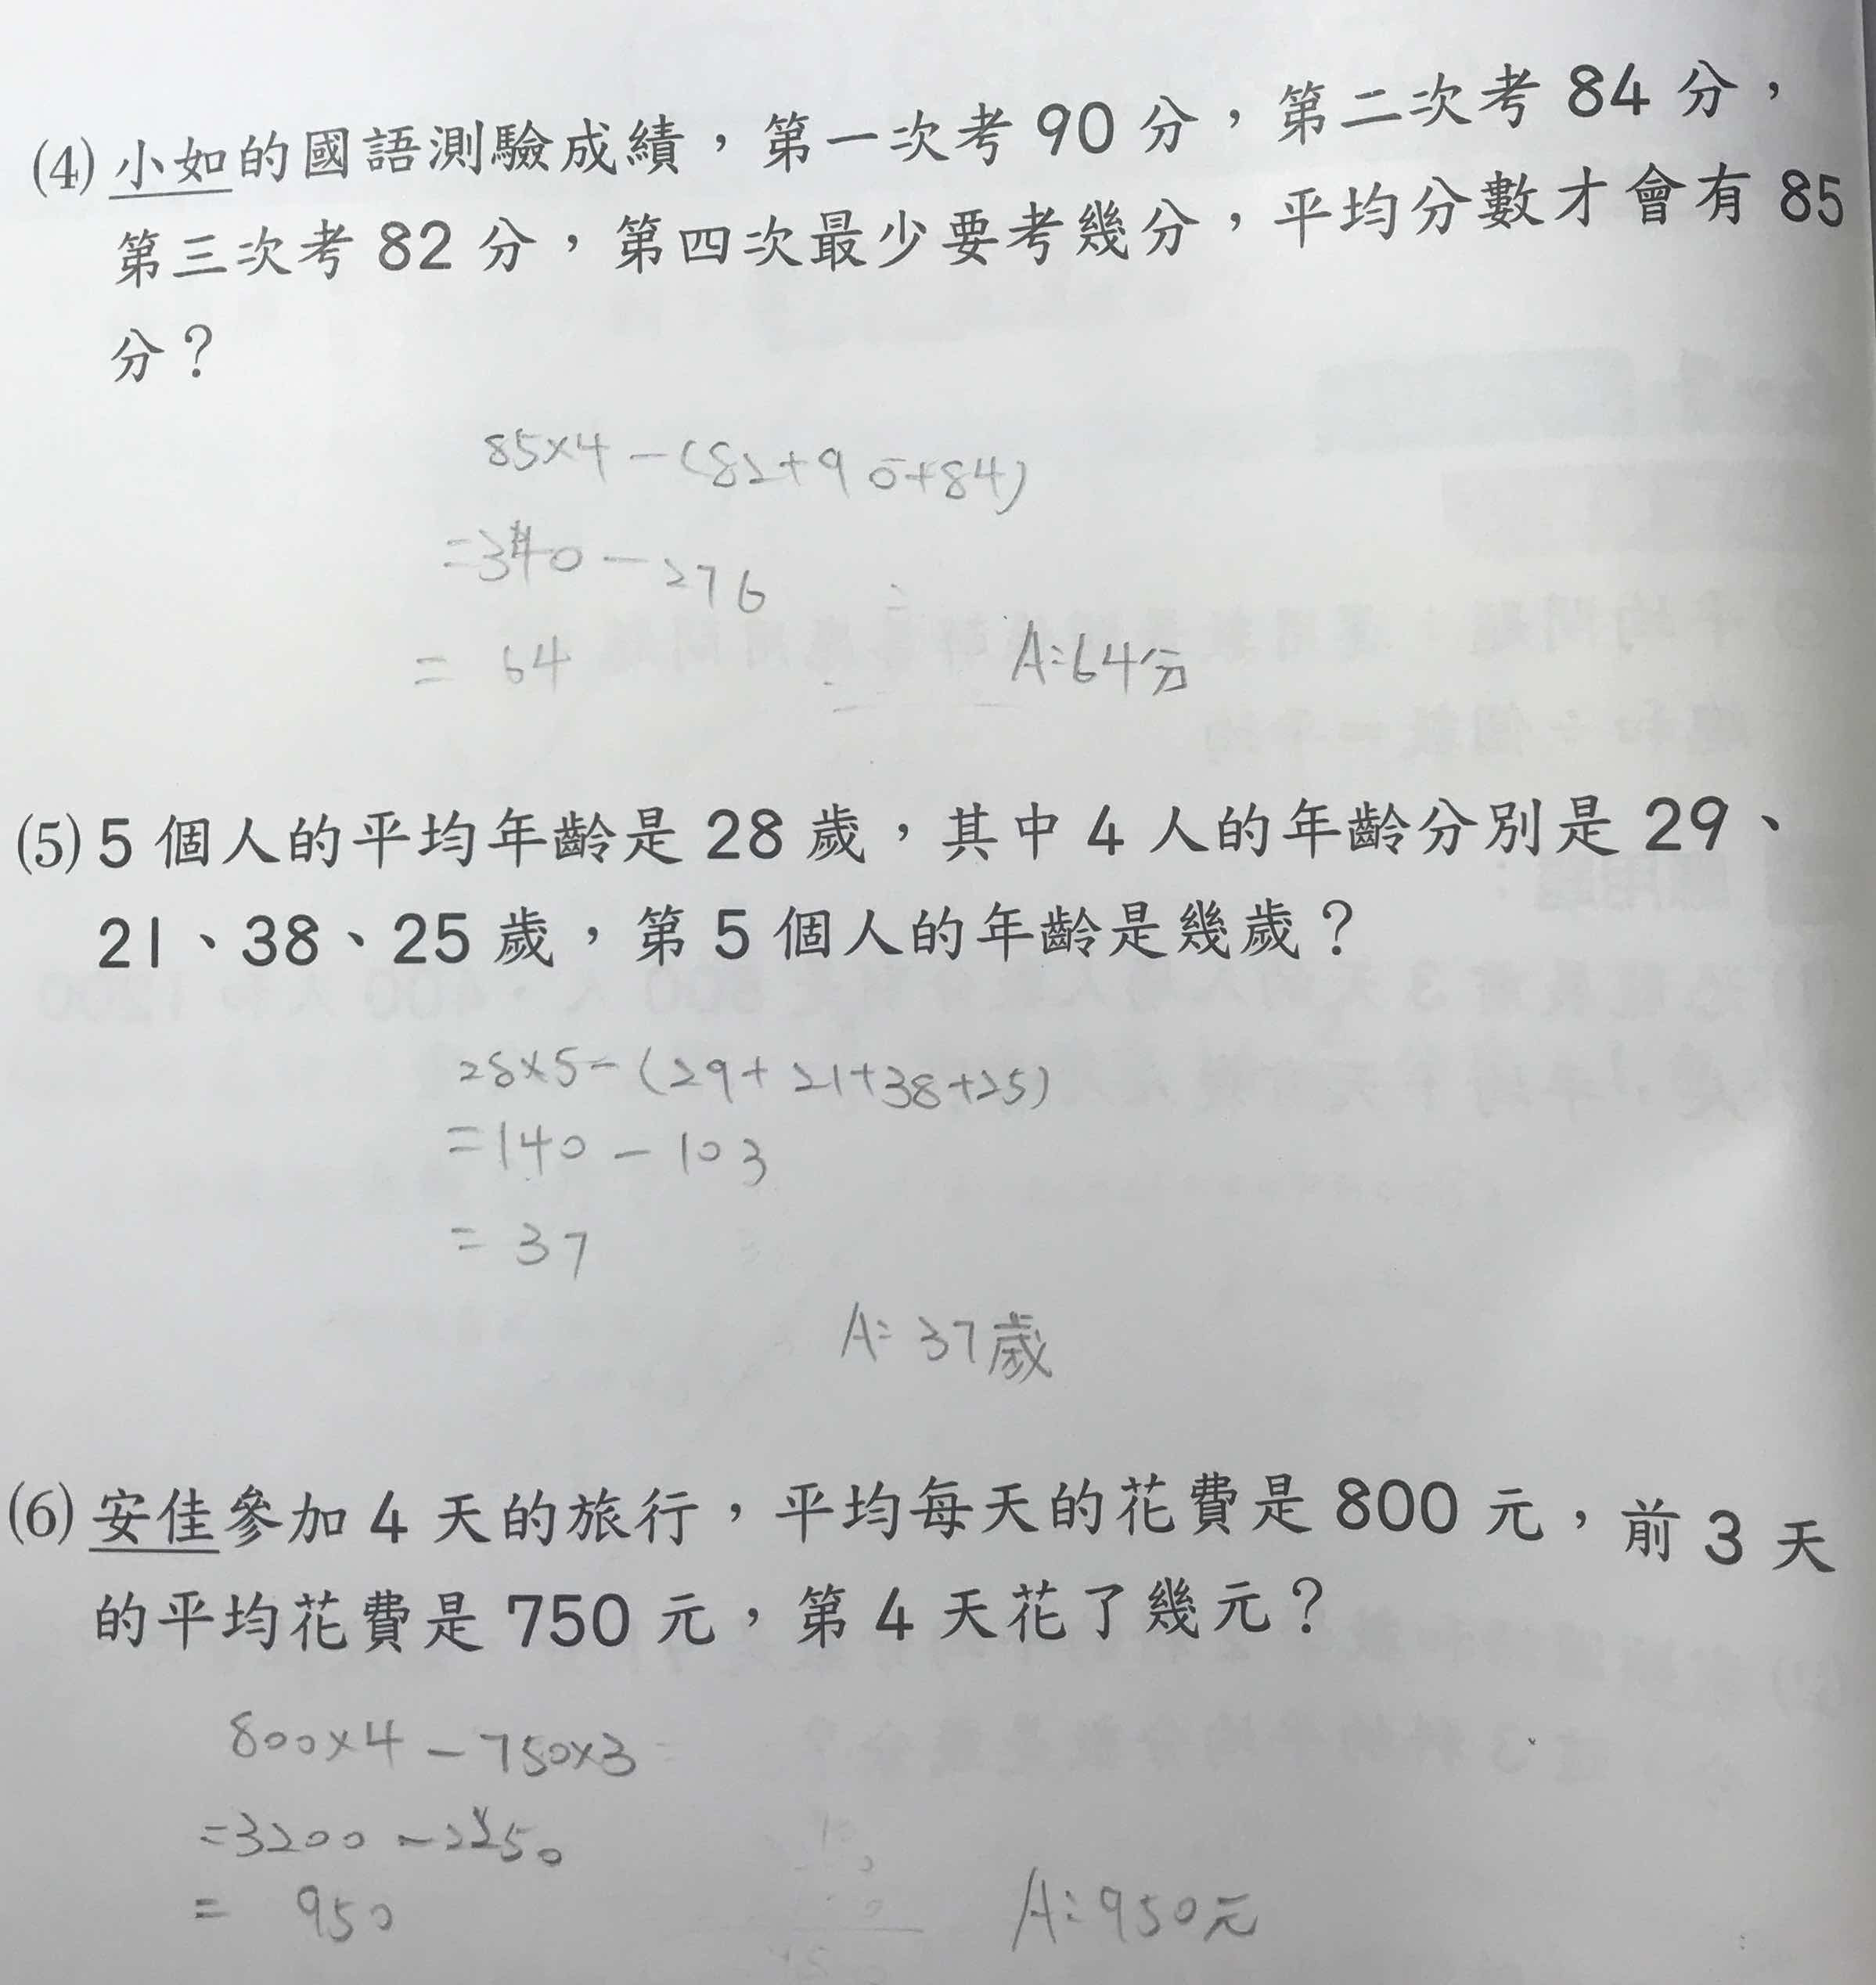 (4) 小如的國語測驗成績，第一次考 90 分，第二次考 84 分，
第三次考 82 分，第四次最少要考幾分，平均分數才會有 85
分？
85×4－(82+90+84)
=340－276
= 64
A:64分
(5) 5 個人的平均年齡是 28 歲，其中 4 人的年齡分別是 29、
21、38、25 歲，第 5 個人的年齡是幾歲？
28×5－(29+21+38+25)
=140－103
= 37
A: 37歲
(6) 安佳參加 4 天的旅行，平均每天的花費是 800 元，前 3 天
的平均花費是 750 元，第 4 天花了幾元？
800×4－750×3
=3200－2250
= 950
A:950元